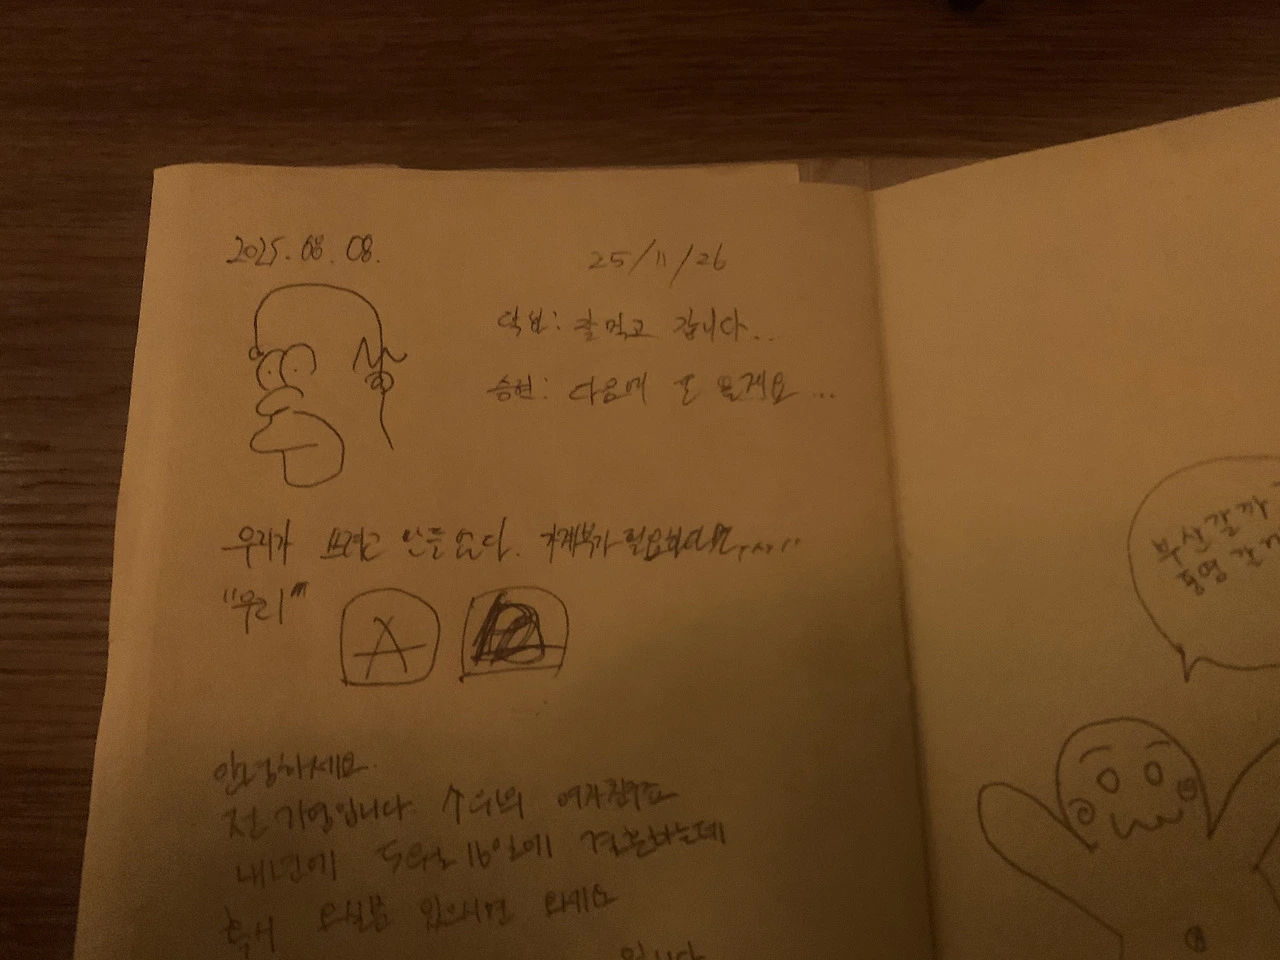 2025.08.08.
25/11/26
덕보: 잘 먹고 갑니다..
승현: 다음에 또 올게요...
우리가 쓰려고 만들었다. 가계부가 필요하다면
"우리"
A
안녕하세요.
전 가영입니다. 수더분 여자친구
내년에 5월 16일에 결혼하는데
혹시 오실분 있으시면 오세요
입니다
부산갈까
통영 갈까